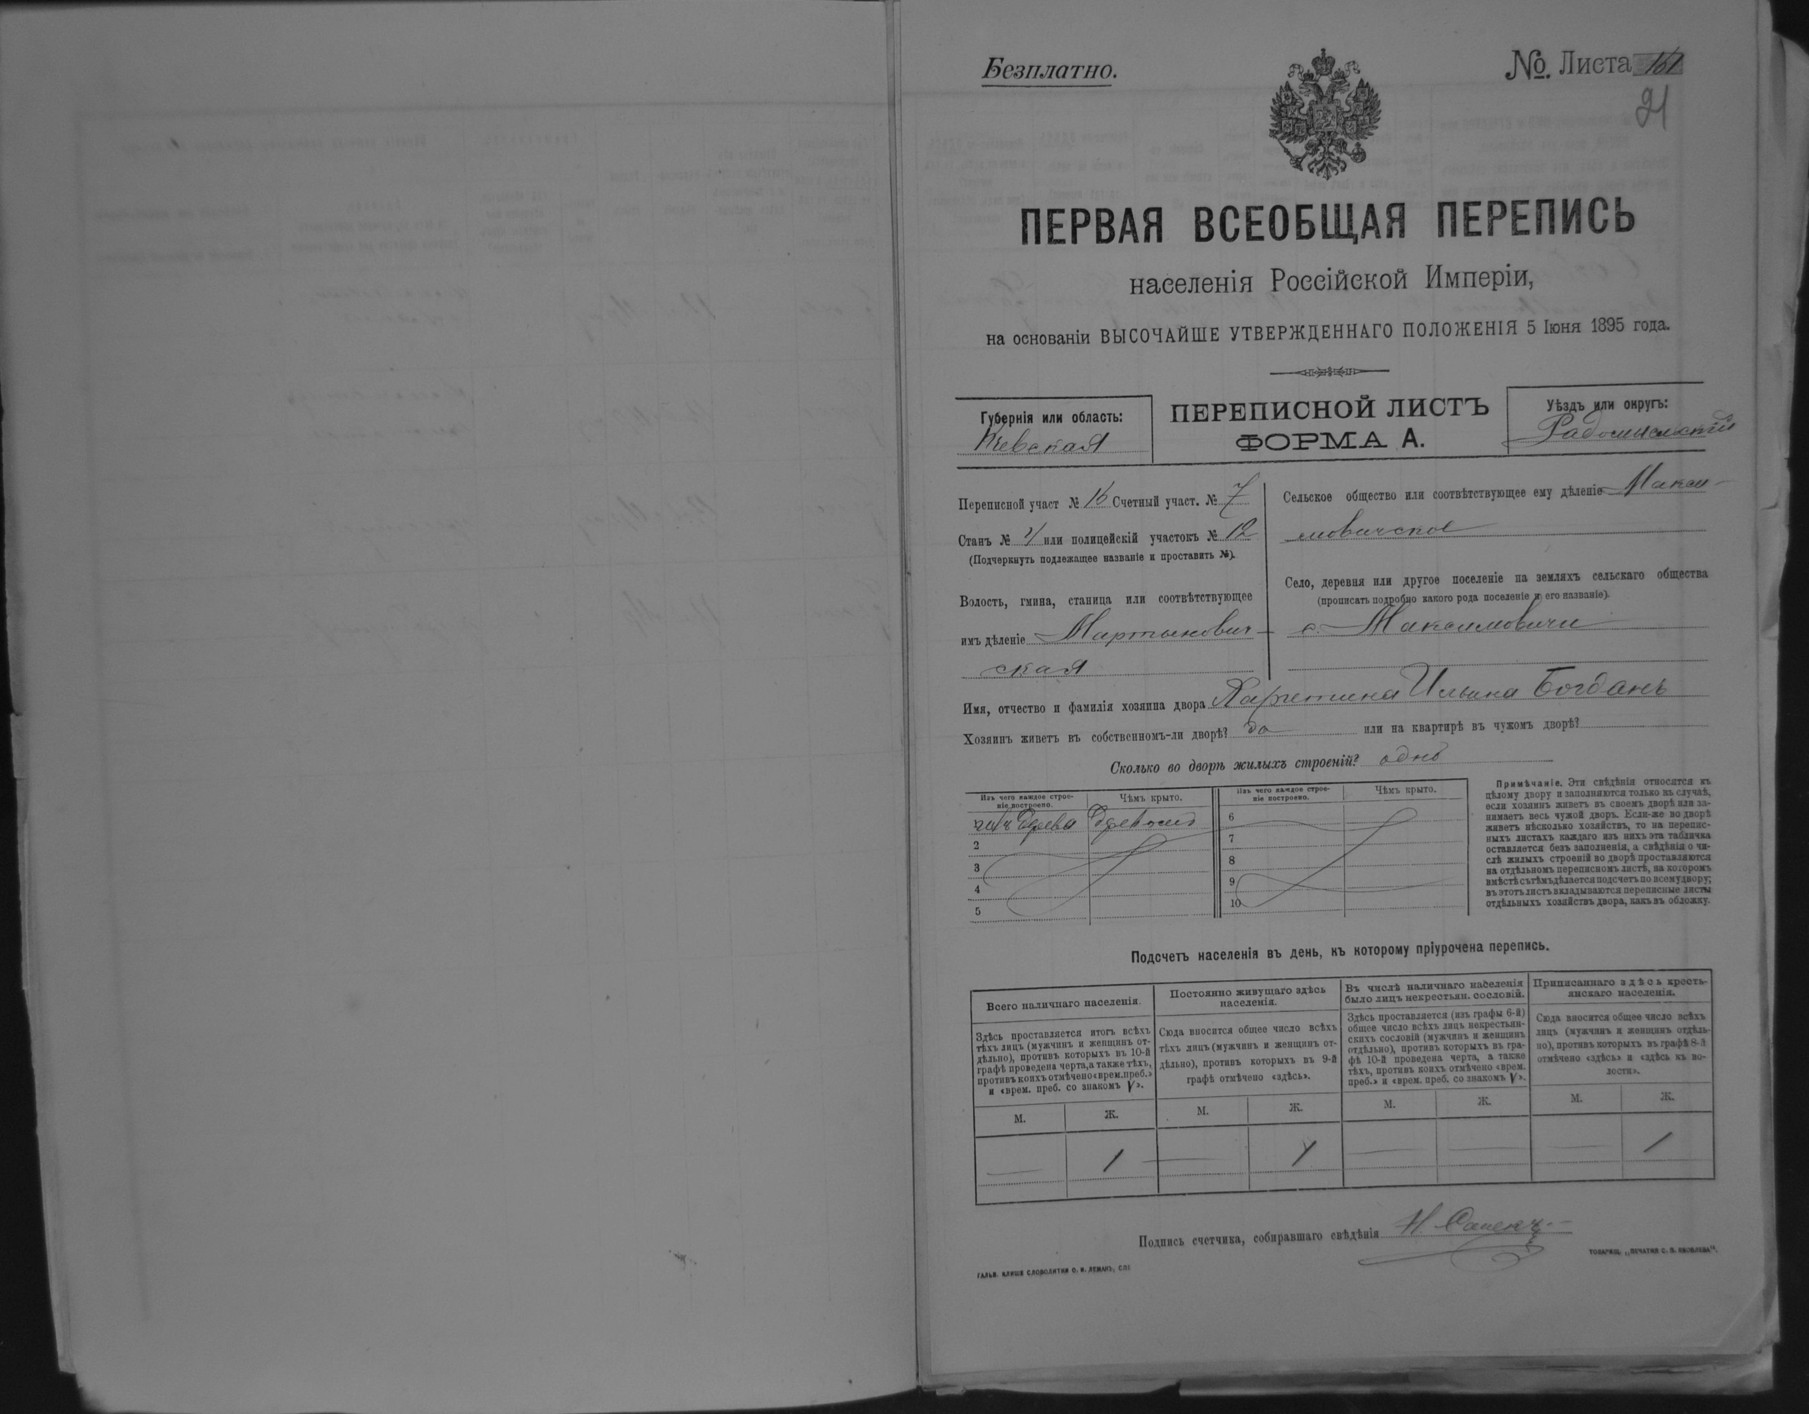 Безплатно.
№. Листа
21
ПЕРВАЯ ВСЕОБЩАЯ ПЕРЕПИСЬ
населенія Россійской Имперіи,
на основаніи ВЫСОЧАЙШЕ УТВЕРЖДЕННАГО ПОЛОЖЕНІЯ 5 Іюня 1895 года.
Губернія или область:
Кіевская
ПЕРЕПИСНОЙ ЛИСТЪ
ФОРМА А.
Уѣздъ или округъ:
Радомысльскій
Переписной участ № 16 Счетный участ. № 7
Станъ № 4 или полицейскій участокъ № 12
(Подчеркнуть подлежащее названіе и проставить №).
Волость, гмина, станица или соотвѣтствующее
имъ дѣленіе Мартынович-
ская
Сельское общество или соотвѣтствующее ему дѣленіе Макси-
мовичское
Село, деревня или другое поселеніе на земляхъ сельскаго общества
(прописать подробно какого рода поселеніе и его названіе).
с. Максимовичи
Имя, отчество и фамилія хозяина двора Харетина Ильина Богданъ
Хозяинъ живетъ въ собственномъ-ли дворѣ? да или на квартирѣ въ чужомъ дворѣ?
Сколько во дворѣ жилыхъ строеній? одно
Изъ чего каждое строе-
ніе построено.
Чѣмъ крыто.
Изъ чего каждое строе-
ніе построено.
Чѣмъ крыто.
дерева
2
3
4
5
6
7
8
9
10
Примѣчаніе. Эти свѣдѣнія относятся къ
цѣлому двору и заполняются только въ случаѣ,
если хозяинъ живетъ въ своемъ дворѣ или за-
нимаетъ весь чужой дворъ. Если-же во дворѣ
живетъ нѣсколько хозяйствъ, то на перепис-
ныхъ листахъ каждаго изъ нихъ эта табличка
оставляется безъ заполненія, а свѣдѣнія о чи-
слѣ жилыхъ строеній во дворѣ проставляются
на отдѣльномъ переписномъ листѣ, на которомъ
вмѣстѣ съ тѣмъ дѣлается подсчетъ по всему двору;
въ этотъ листъ вкладываются переписные листы
отдѣльныхъ хозяйствъ двора, какъ въ обложку.
Подсчетъ населенія въ день, къ которому пріурочена перепись.
Всего наличнаго населенія.
Здѣсь проставляется итогъ всѣхъ
тѣхъ лицъ (мужчинъ и женщинъ от-
дѣльно), противъ которыхъ въ 10-й
графѣ проведена черта, а также тѣхъ,
противъ коихъ отмѣчено «врем. преб.»
и «врем. преб. со знакомъ V».
Постоянно живущаго здѣсь
населенія.
Сюда вносится общее число всѣхъ
тѣхъ лицъ (мужчинъ и женщинъ от-
дѣльно), противъ которыхъ въ 9-й
графѣ отмѣчено «здѣсь».
Въ числѣ наличнаго населенія
было лицъ некрестьян. сословій.
Здѣсь проставляется (изъ графы 6-й)
общее число всѣхъ лицъ некрестьян-
скихъ сословій (мужчинъ и женщинъ
отдѣльно), противъ которыхъ въ гра-
фѣ 10-й проведена черта, а также
тѣхъ, противъ коихъ отмѣчено «врем.
преб.» и «врем. преб. со знакомъ V».
Приписаннаго здѣсь кресть-
янскаго населенія.
Сюда вносится общее число всѣхъ
лицъ (мужчинъ и женщинъ отдѣль-
но), противъ которыхъ въ графѣ 8-й
отмѣчено «здѣсь» и «здѣсь къ во-
лости».
М. Ж. М. Ж. М. Ж. М. Ж.
— 1 — 1 — — — 1
Подпись счетчика, собиравшаго свѣдѣнія
ГАЛЬВ. КЛИШЕ СЛОВОЛИТНИ О. И. ЛЕМАНЪ, СПБ
ТОВАРИЩ. „ПЕЧАТНЯ С. П. ЯКОВЛЕВА".